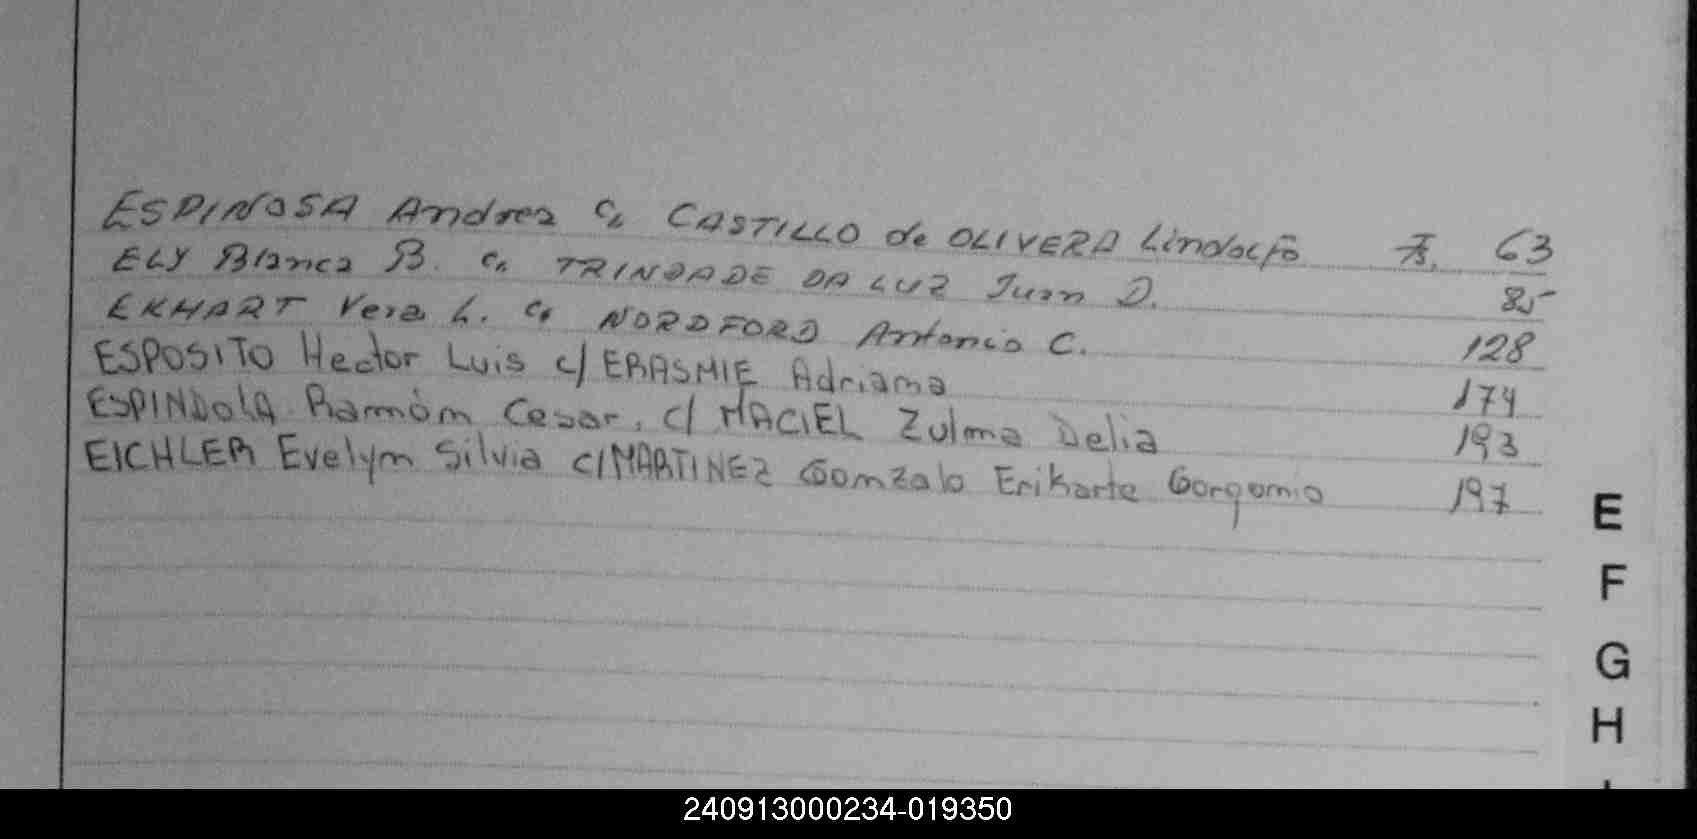 ESPINOSA Andrea c/ CASTILLO de OLIVERA Lindolfo Fs. 63
ELY Blanca B. c/ TRINDADE DA LUZ Juan D. 85
EKHART Vera L. c/ NORDFORD Antonio C. 128
ESPOSITO Hector Luis c/ ERASMIE Adriana 174
ESPINDOLA Ramón Cesar, c/ MACIEL Zulma Delia 193
EICHLER Evelyn Silvia c/ MARTINEZ Gonzalo Erikarte Gorgonio 197
E
F
G
H
240913000234-019350